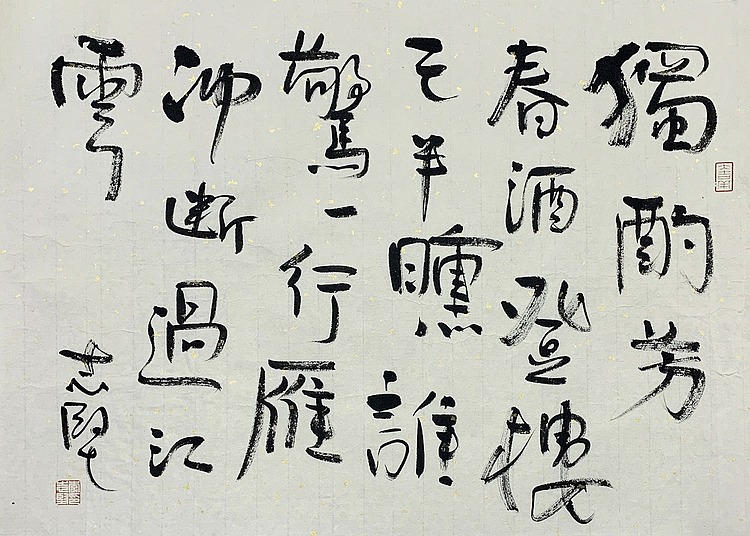 獨酌芳
春酒登樓
已半曛誰
驚一行雁
冲断過江
雲
志堅